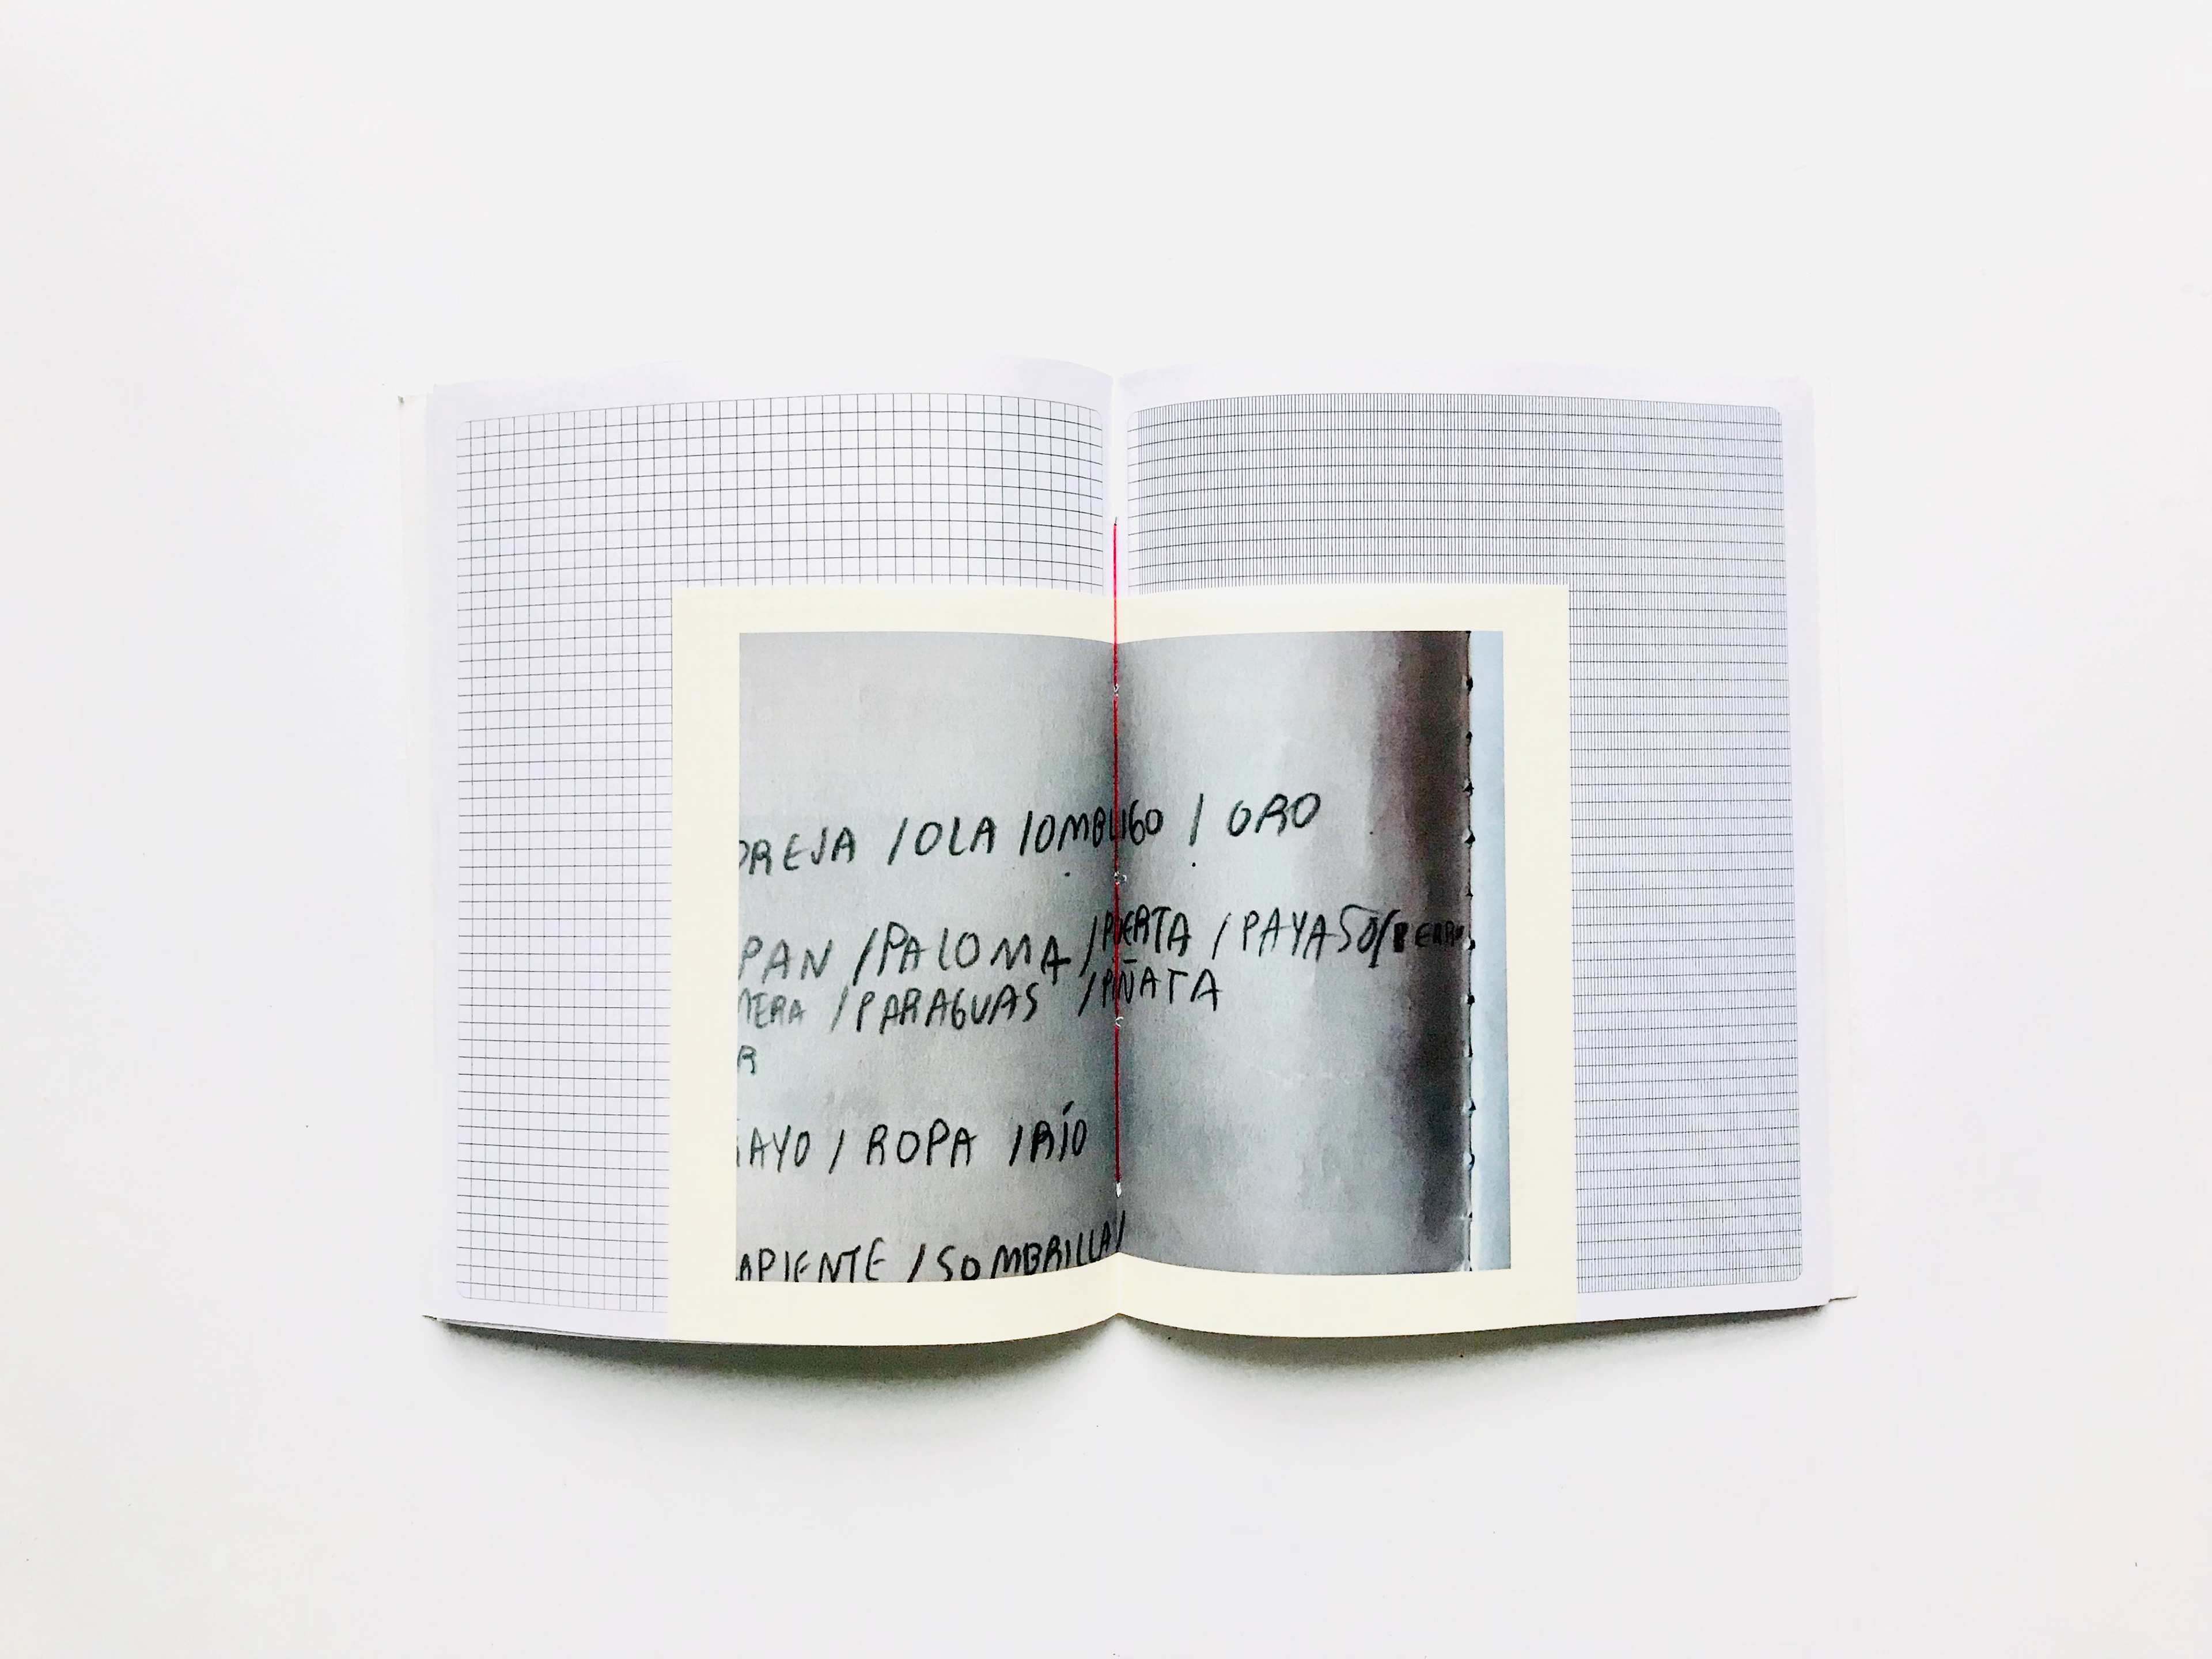 OREJA / OLA / OMBLIGO / ORO
PAN / PALOMA / PUERTA / PAYASO / PERRO
/ PARAGUAS / PIÑATA
R
AYO / ROPA / RÍO
APIENTE / SOMBRILLA /